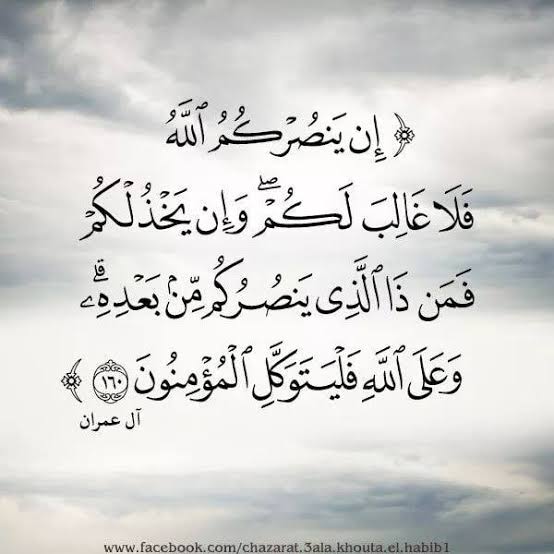 ﴿ إِن يَنصُرْكُمُ ٱللَّهُ
فَلَا غَالِبَ لَكُمْ ۖ وَإِن يَخْذُلْكُمْ
فَمَن ذَا ٱلَّذِى يَنصُرُكُم مِّنۢ بَعْدِهِۦ ۗ
وَعَلَى ٱللَّهِ فَلْيَتَوَكَّلِ ٱلْمُؤْمِنُونَ ١٦٠ ﴾
آل عمران
www.facebook.com/chazarat.3ala.khouta.el.habib1